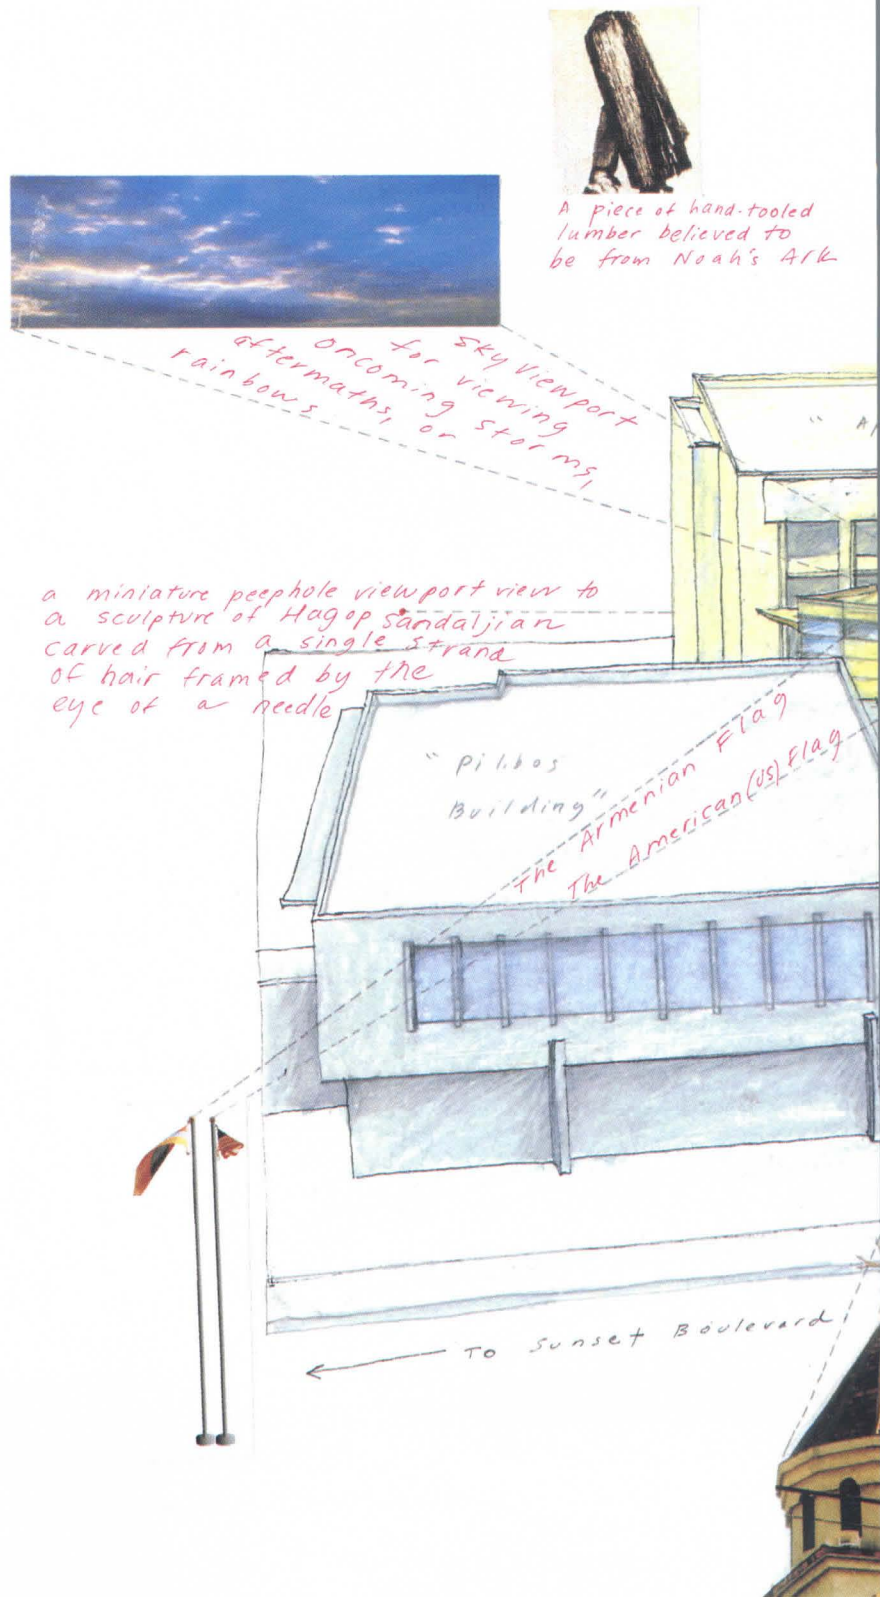 A piece of hand-tooled
lumber believed to
be from Noah's Ark
Sky viewport
for viewing
oncoming storms,
aftermaths, or
rainbows
" A
a miniature peephole viewport view to
a sculpture of Hagop Sandaljian
carved from a single strand
of hair framed by the
eye of a needle
"Pilibos
Building"
The Armenian Flag
The American (US) Flag
To Sunset Boulevard